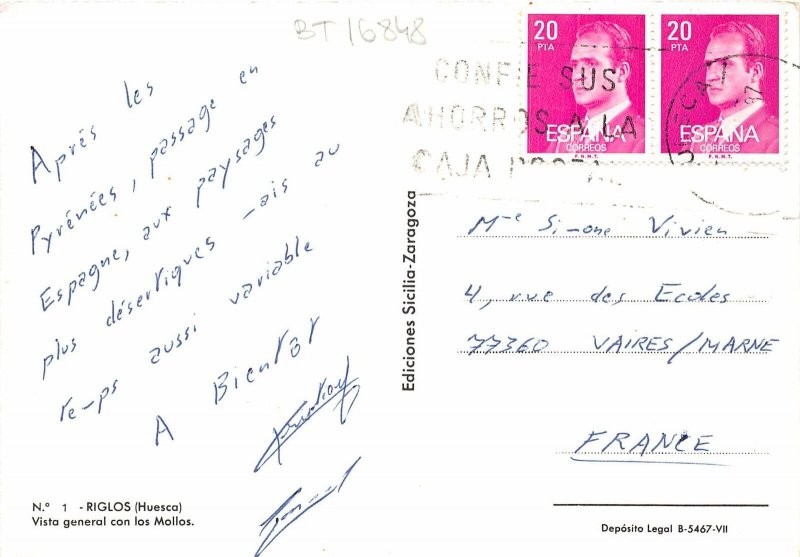 BT 16848
20
PTA
ESPAÑA
CORREOS
F.N.M.T.
20
PTA
ESPAÑA
CORREOS
F.N.M.T.
CONFIE SUS
AHORROS A LA
CAJA
Après les
Pyrénées, passage en
Espagne, aux paysages
plus désertiques mais au
temps aussi variable
A Bientot
Ediciones Sicilia-Zaragoza
Mme Simone Vivien
4, rue des Ecoles
77360 VAIRES/MARNE
FRANCE
N.º 1 - RIGLOS (Huesca)
Vista general con los Mollos.
Depósito Legal B-5467-VII